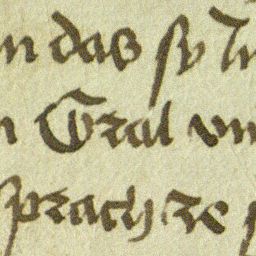 n das sy
Gral vn
sprach